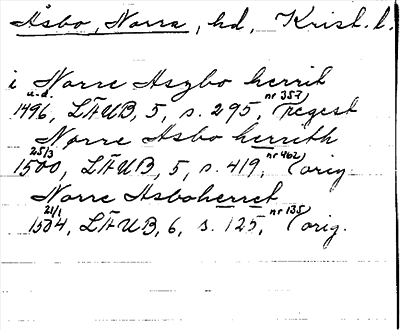 Åsbo, Norra, hd, Krist. l.
i Norre Aszbo herrit
u.d. nr 357)
1496, LÄUB, 5, s. 295, (regest
Norre Asbo herrith
25/3 nr 462)
1500, LÄUB, 5, s. 419, (orig.
Norre Asboherret
21/1 nr 135)
1504, LÄUB, 6, s. 125, (orig.